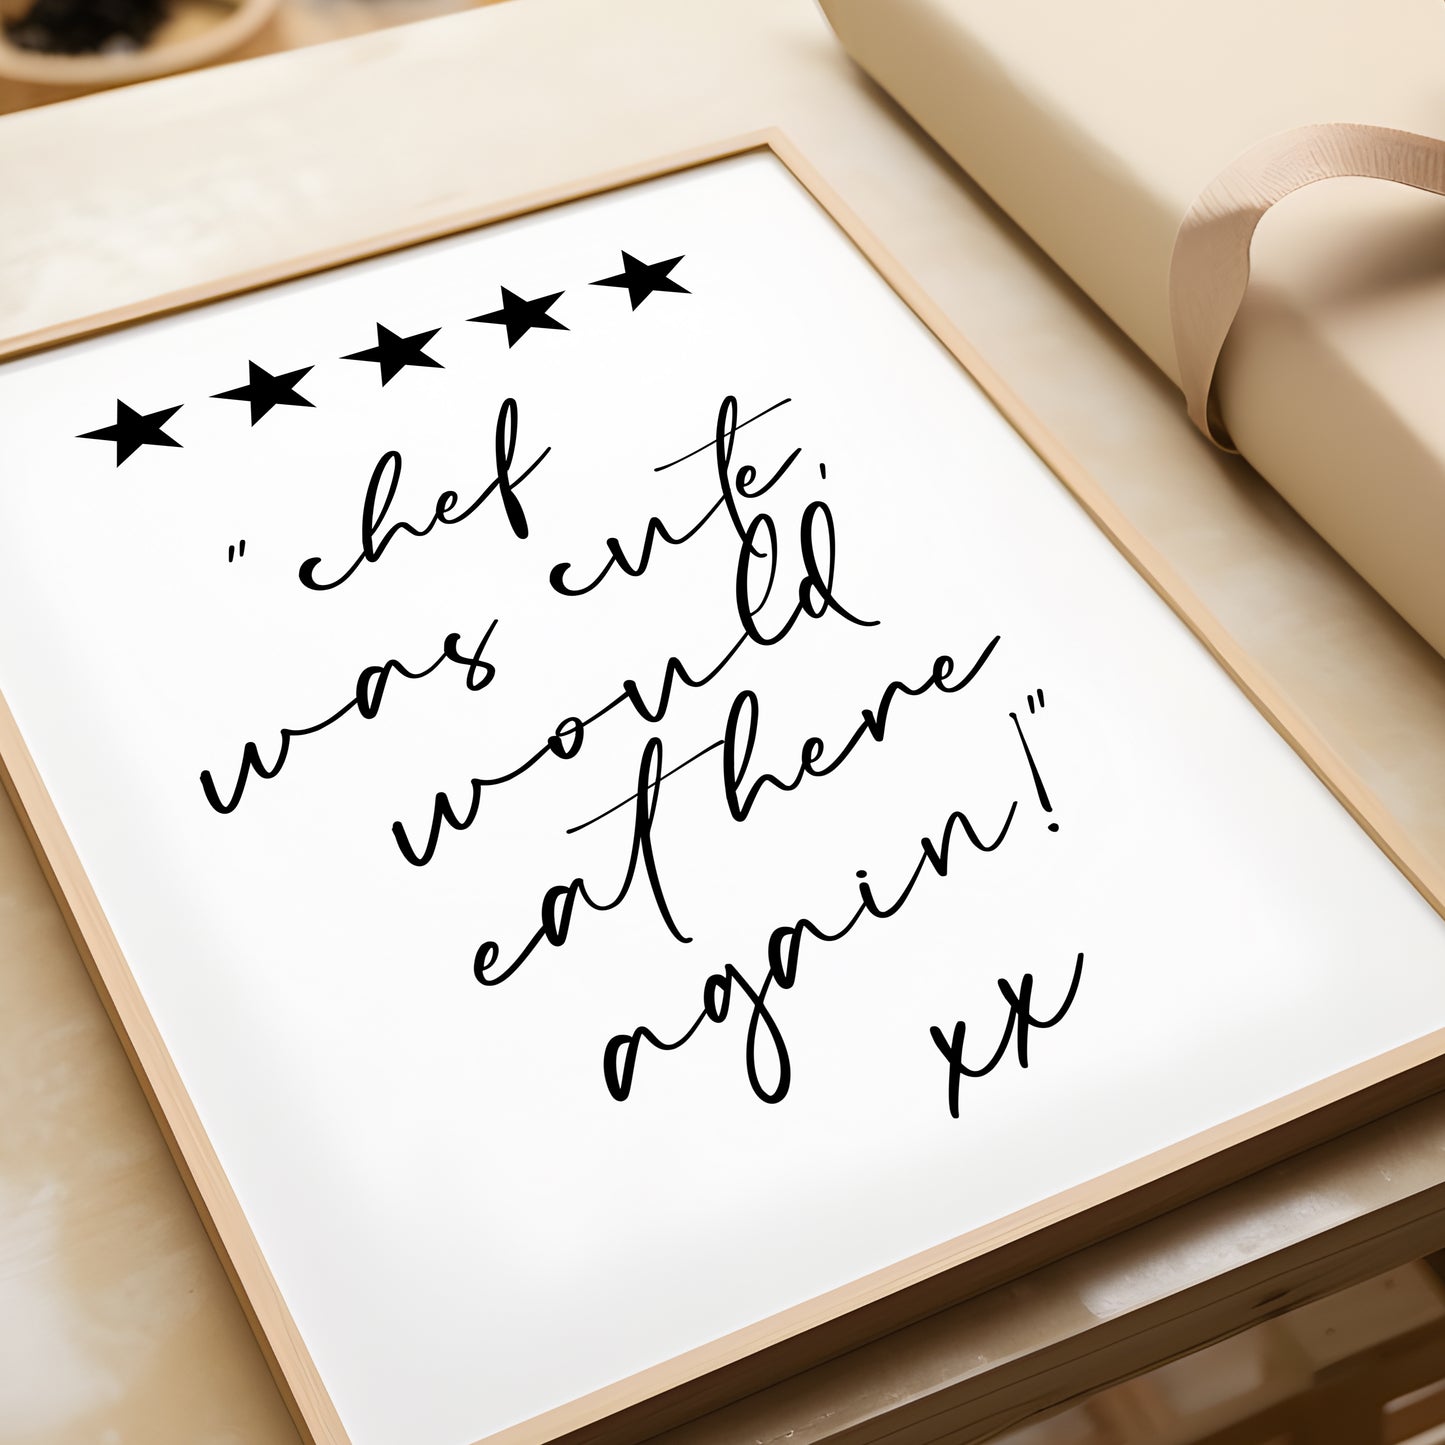 "chef
was cute,
would
eat here
again!"
xx